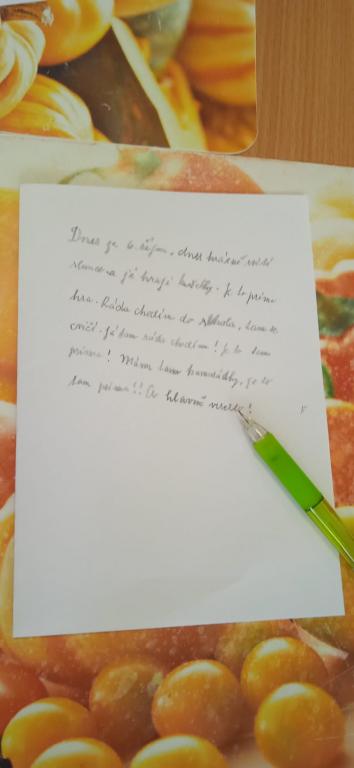 Dnes je 6. října, dnes krásně svítí
slunce a já hraji kuličky. Je to prima
hra. Ráda chodím do Sokola, tam se
cvičí. Já tam ráda chodím! Je to tam
prima! Mám tam kamarádky, je to
tam prima!! A hlavně veselo!